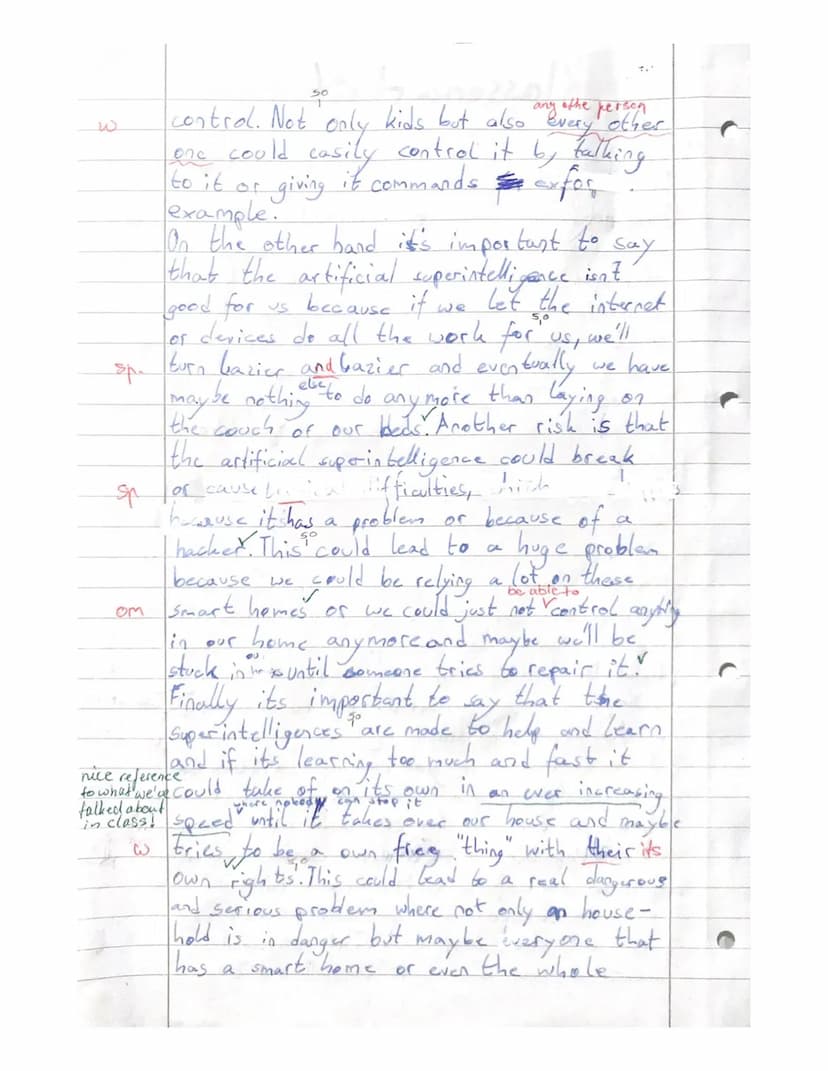 50
any othe person
w control. Not only kids but also every other
one could easily control it by talking
to it or giving it commands for
example.
On the other hand it's important to say
that the artificial superintelligence isn't
good for us because if we let the internet
or devices do all the work for us, we'll
50
sp. turn lazier and lazier and eventually we have
else
maybe nothing to do anymore than laying on
the couch or our beds. Another risk is that
the artificial superintelligence could break
sp or cause difficulties,
because it has a problem or because of a
50
hacker. This could lead to a huge problem
because we could be relying a lot on these
be able to
om smart homes or we could just not control anything
in our home anymore and maybe we'll be
stuck in until someone tries to repair it.
Finally its important to say that the
50
superintelligences are made to help and learn
and if its learning too much and fast it
nice reference
to what we've
talked about
in class!
could take of on its own in an ever increasing
where nobody can stop it
speed until it takes over our house and maybe
w tries to be a own free "thing" with their its
own rights. This could lead to a real dangerous
50
and serious problem where not only a house-
hold is in danger but maybe everyone that
has a smart home or even the whole